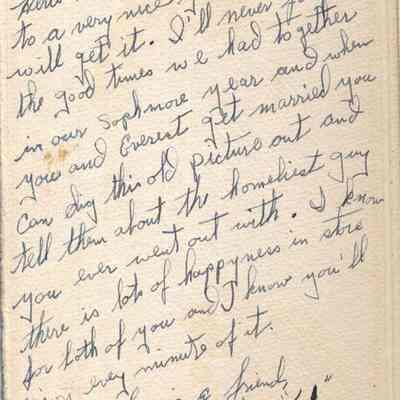 to a very nice
will get it. I'll never
the good times we had together
in our Sophmore year and when
you and Everest get married you
can dig this old picture out and
tell them about the homeliest guy
you ever went out with. I know
there is lots of happyness in store
for both of you and I know you'll
every minute of it.
a friend,